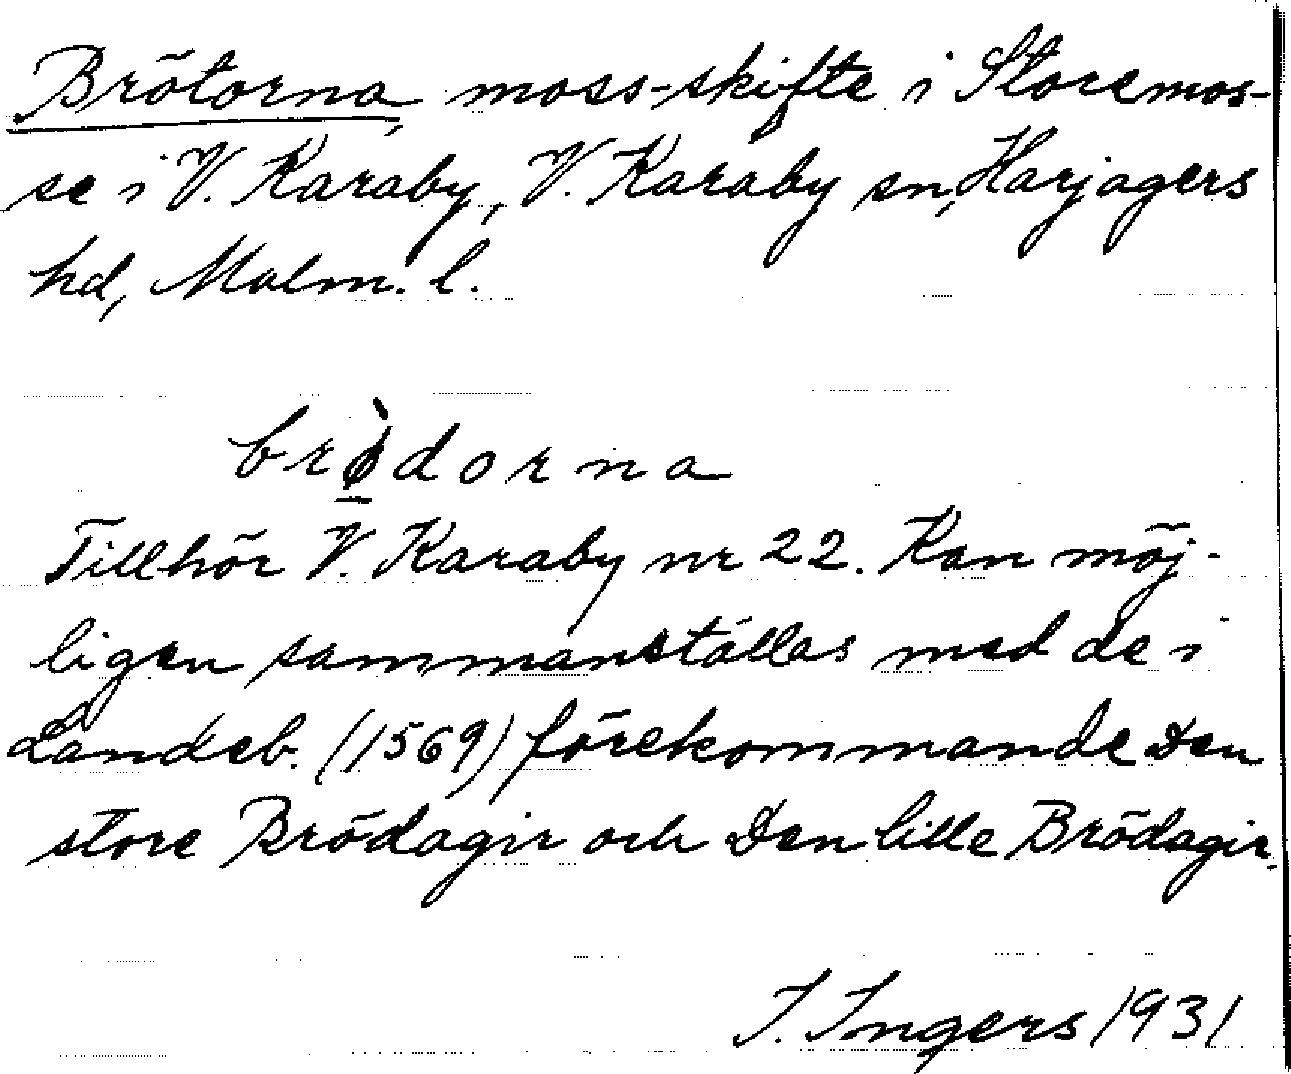 Brötorna, moss-skifte i Storemos-
se i V. Karaby, V. Karaby sn, Harjagers
hd, Malm. l.
brø̀dorna
Tillhör V. Karaby nr 22. Kan möj-
ligen sammanställas med de i
Landeb. (1569) förekommande Den
store Brödagir och Den lille Brödagir.
I. Ingers 1931